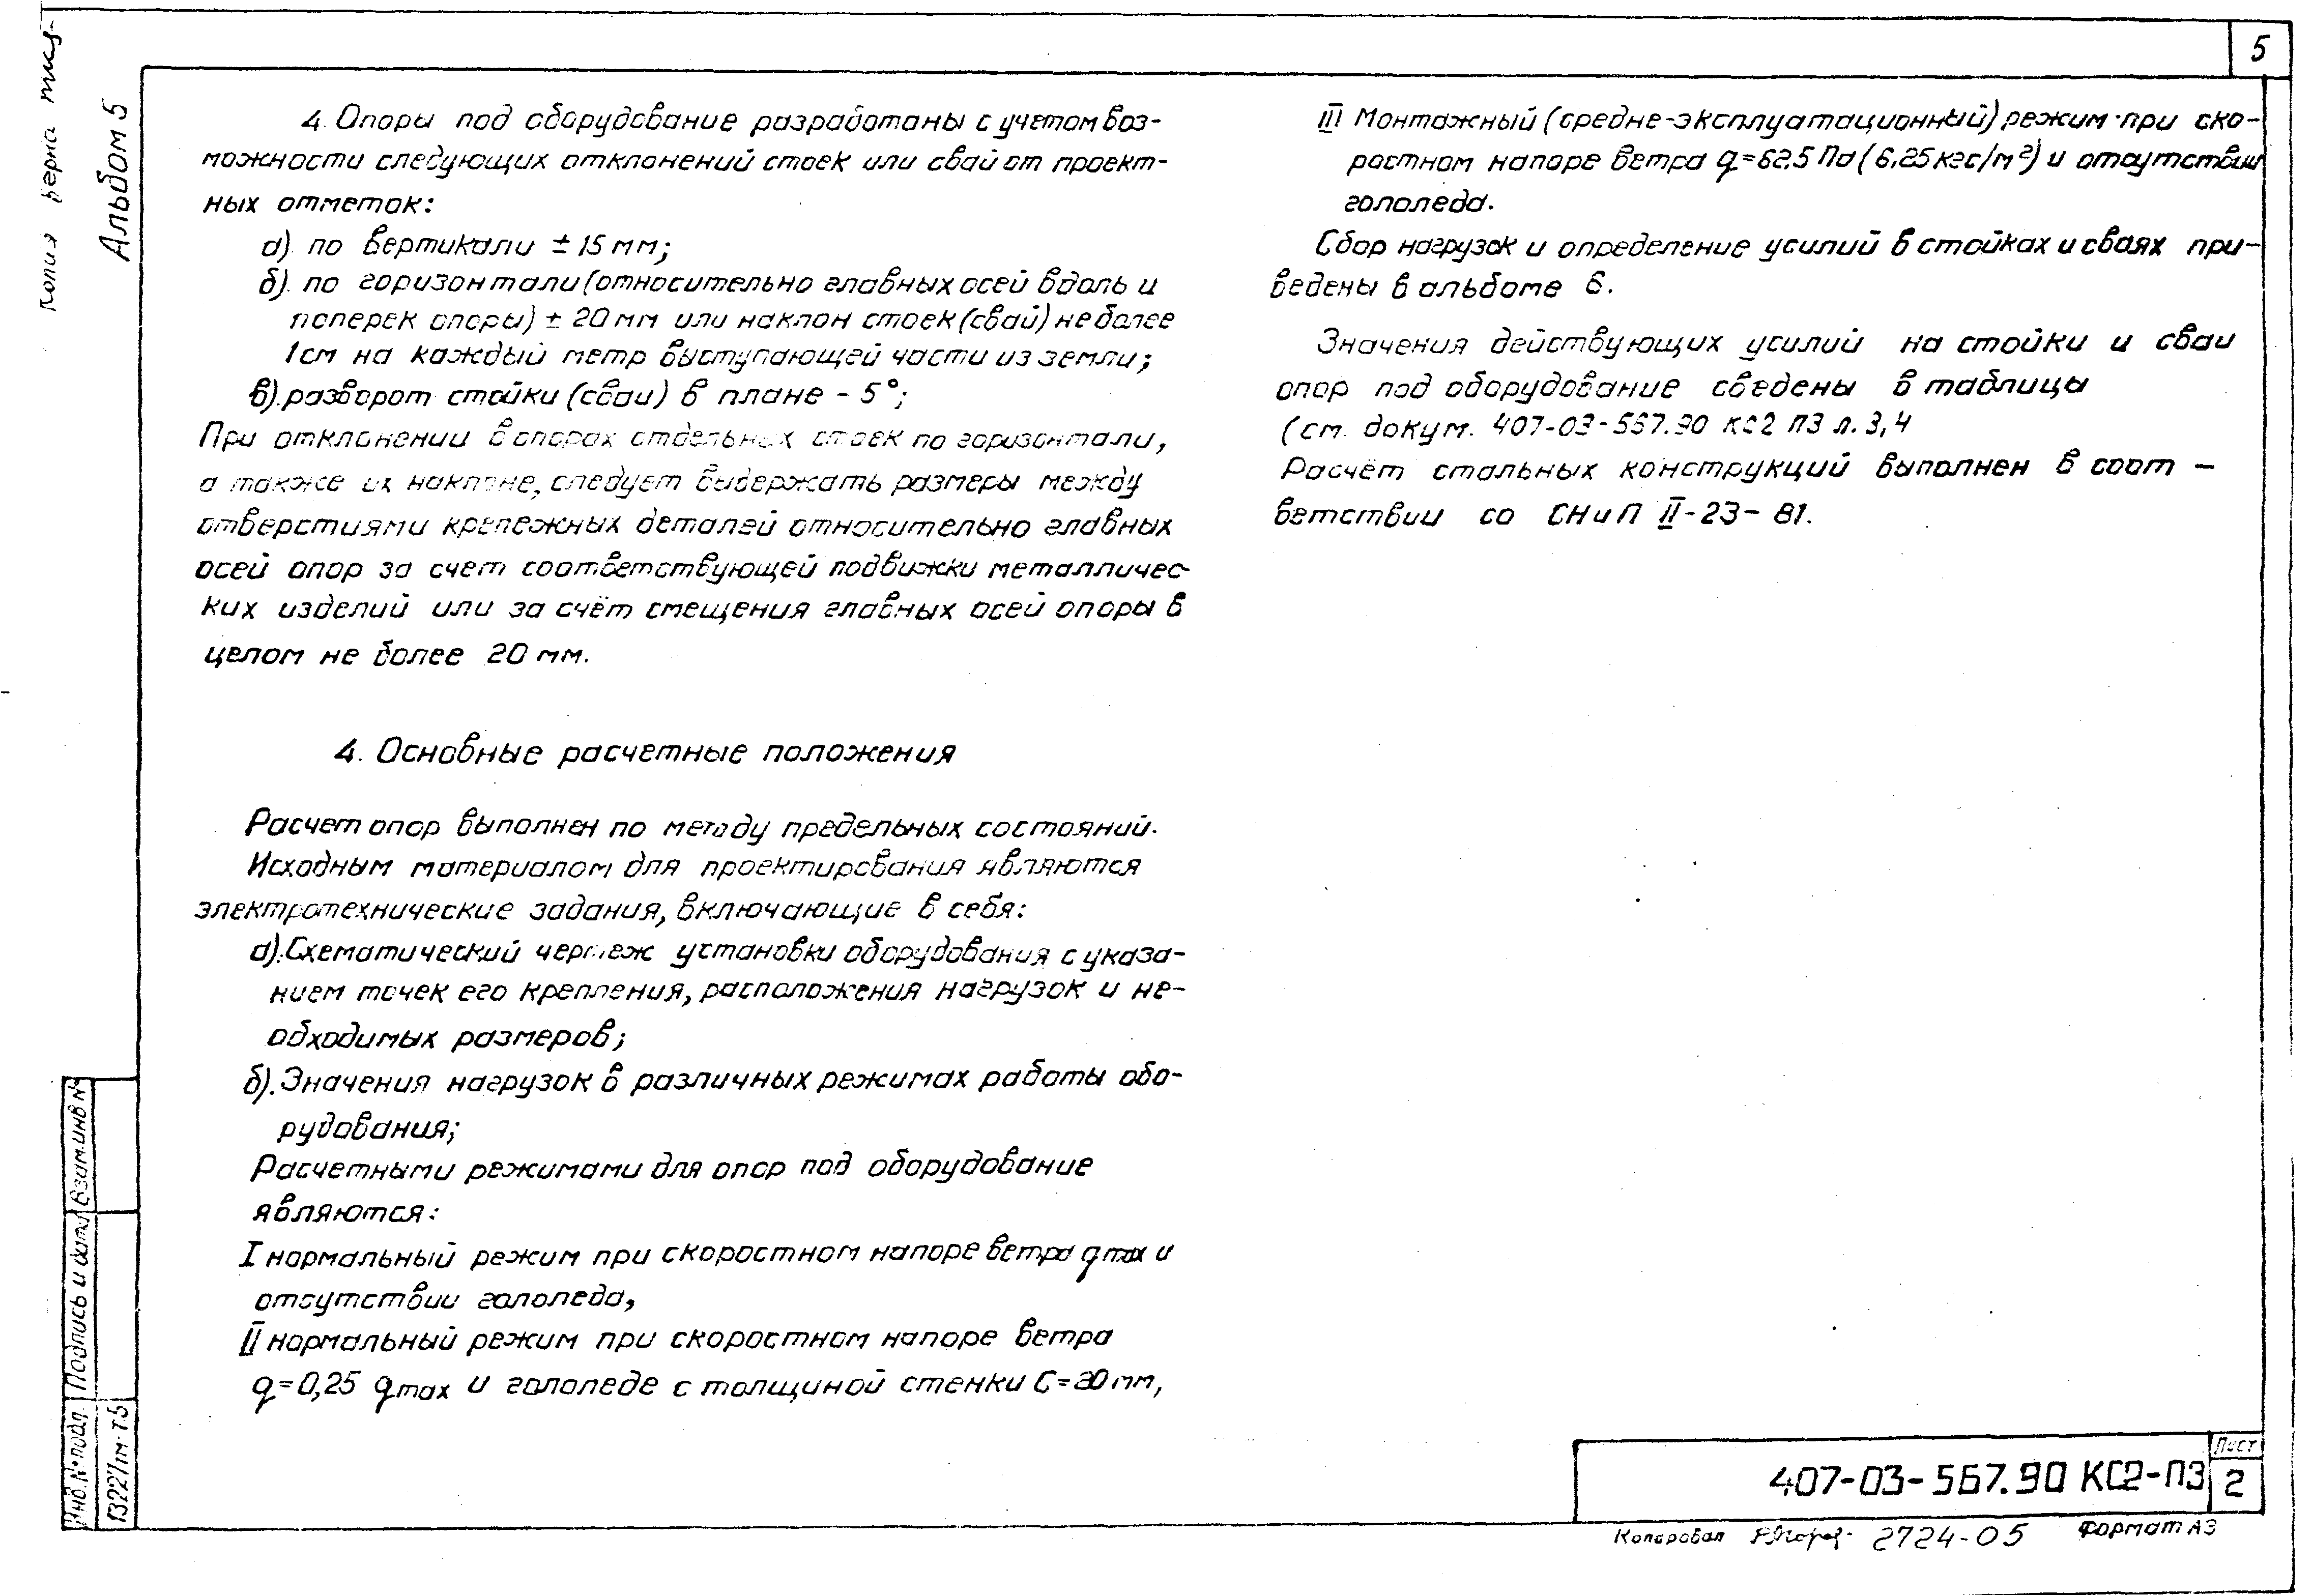 5
Копия верна
Альбом 5
4. Опоры под оборудование разработаны с учетом воз-
можности следующих отклонений стоек или свай от проект-
ных отметок:
а). по вертикали ± 15 мм;
б). по горизонтали (относительно главных осей вдоль и
поперек опоры) ± 20 мм или наклон стоек (свай) не более
1см на каждый метр выступающей части из земли;
в). разворот стойки (сваи) в плане - 5°;
При отклонении в опорах отдельных стоек по горизонтали,
а также их наклоне, следует выдержать размеры между
отверстиями крепежных деталей относительно главных
осей опор за счет соответствующей подвижки металличес-
ких изделий или за счёт смещения главных осей опоры в
целом не более 20 мм.
4. Основные расчетные положения
Расчет опор выполнен по методу предельных состояний.
Исходным материалом для проектирования являются
электротехнические задания, включающие в себя:
а). Схематический чертеж установки оборудования с указа-
нием точек его крепления, расположения нагрузок и не-
обходимых размеров;
б). Значения нагрузок в различных режимах работы обо-
рудования;
Расчетными режимами для опор под оборудование
являются:
I нормальный режим при скоростном напоре ветра qmax и
отсутствии гололеда,
II нормальный режим при скоростном напоре ветра
q=0,25 qmax и гололеде с толщиной стенки С=20мм,
III Монтажный (средне-эксплуатационный) режим при ско-
ростном напоре ветра q=62.5 Па (6.25 кгс/м²) и отсутствии
гололеда.
Сбор нагрузок и определение усилий в стойках и сваях при-
ведены в альбоме 6.
Значения действующих усилий на стойки и сваи
опор под оборудование сведены в таблицы
(см. докум. 407-03-567.90 КС2 ПЗ л. 3,4
Расчёт стальных конструкций выполнен в соот -
ветствии со СНиП II-23-81.
Взам.инв №
Подпись и дата
Инв.№подл.
1322/тм-т5
407-03-567.90 КС2-ПЗ
Лист
2
Копировал 2724-05 Формат А3